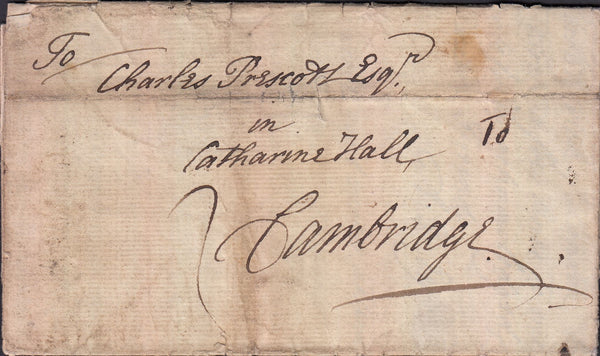 To
Charles Prescott Esqr.,
in
Catharine Hall,
Cambridge